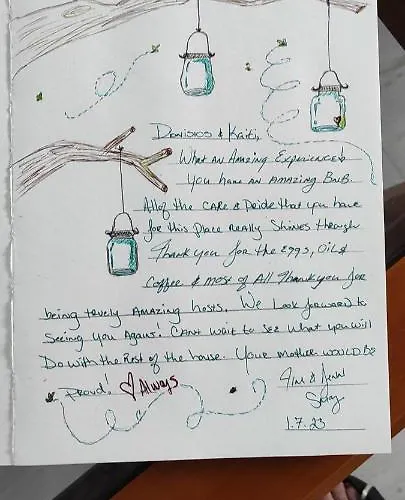 Dionisios & Kaiti,
What an Amazing Experience!
You have an amazing BnB.
All of the care & Pride that you have
for this place Really Shines through
Thank you for the eggs, oil &
coffee & most of All Thank you for
being truely Amazing hosts. We Look forward to
Seeing you Again! Can't wait to see what you will
Do with the Rest of the house. Your Mother would be
Proud! Always
&
1.7.23